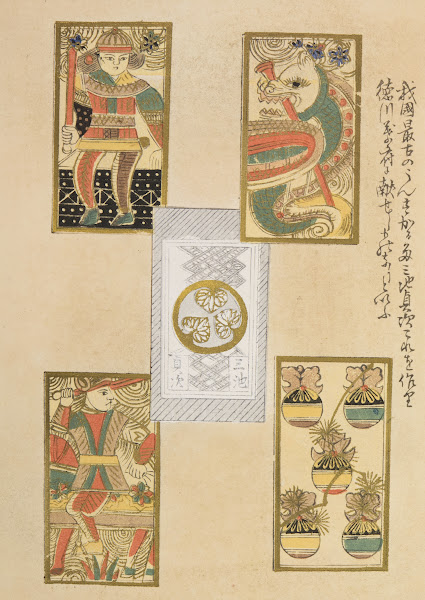 我國最古のうんすんかるた三池貞次これを作り
徳川幕府に献せしものなりといふ
三池
貞次